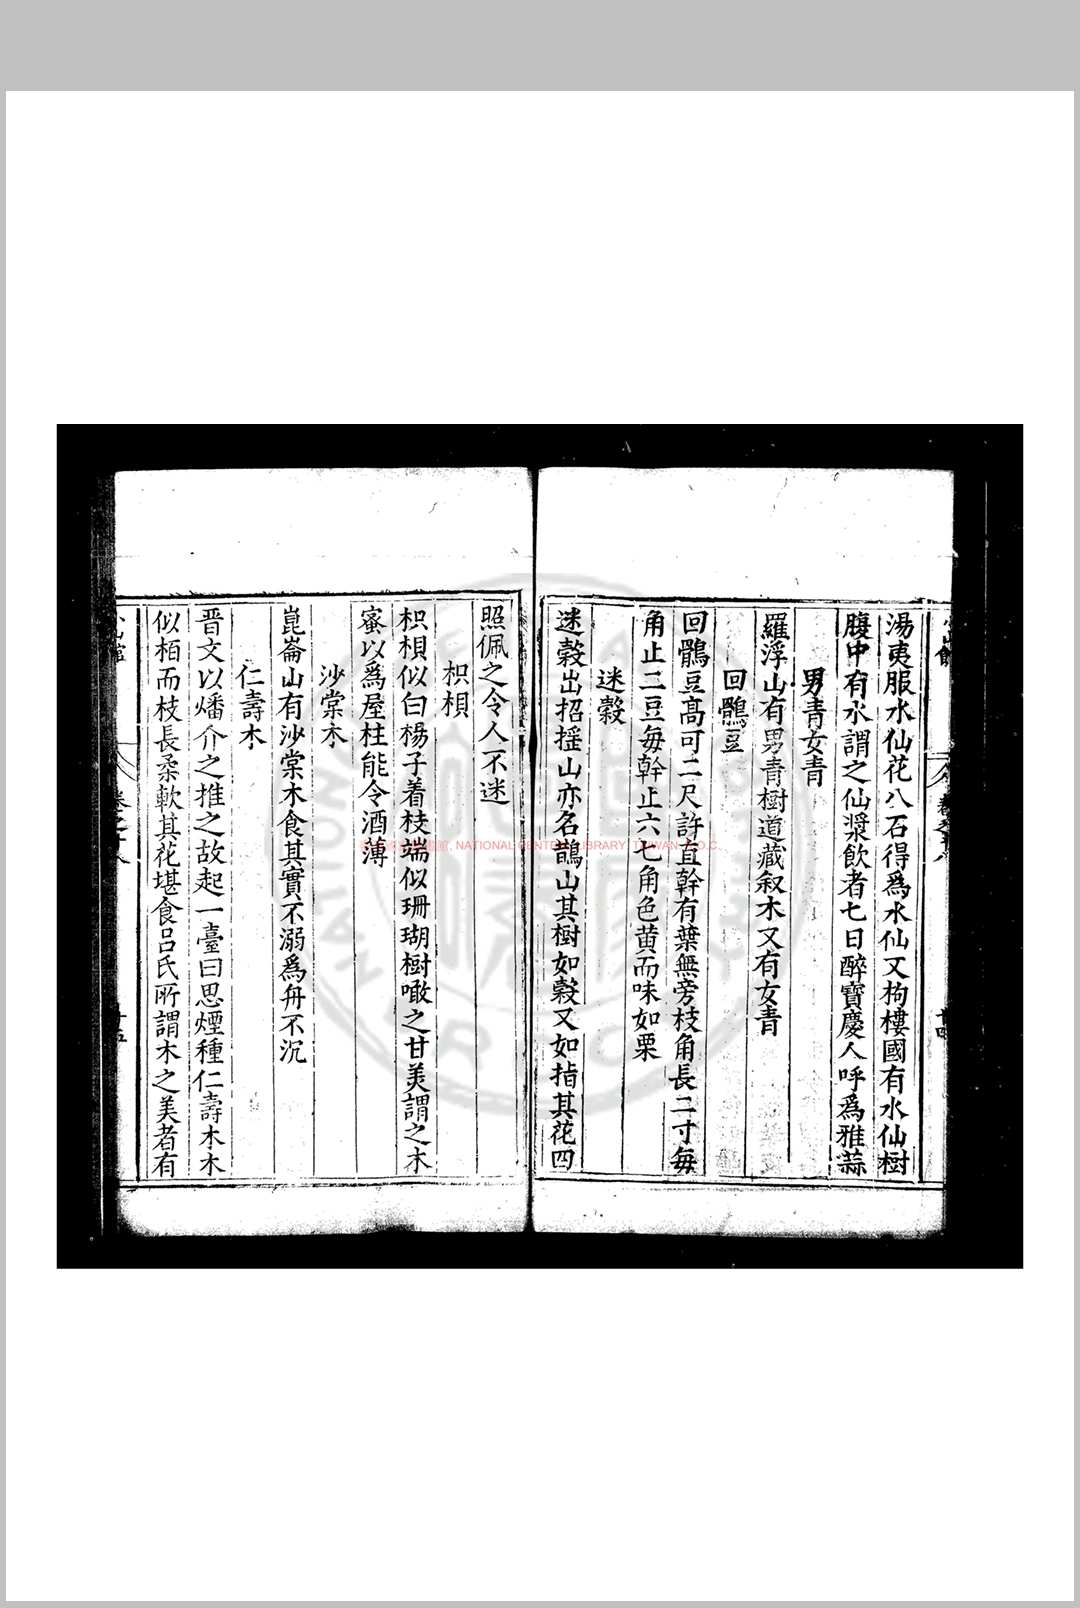 湯夷服水仙花八石得爲水仙又拘樓國有水仙樹
腹中有水謂之仙漿飲者七日醉寶慶人呼爲雅蒜
男青女青
羅浮山有男青樹道藏叙木又有女青
回鶻豆
回鶻豆髙可二尺許直幹有葉無旁枝角長二寸每
角止二豆每幹止六七角色黄而味如栗
迷榖
迷榖出招揺山亦名鵲山其樹如榖又如指其花四
照佩之令人不迷
枳椇
枳椇似白楊子着枝端似珊瑚樹噉之甘美謂之木
蜜以爲屋柱能令酒薄
沙棠木
崑崙山有沙棠木食其實不溺爲舟不沉
仁壽木
晋文以燔介之推之故起一臺曰思煙種仁壽木木
似栢而枝長柔軟其花堪食吕氏所謂木之美者有
NATIONAL CENTRAL LIBRARY, TAIWAN, R.O.C.